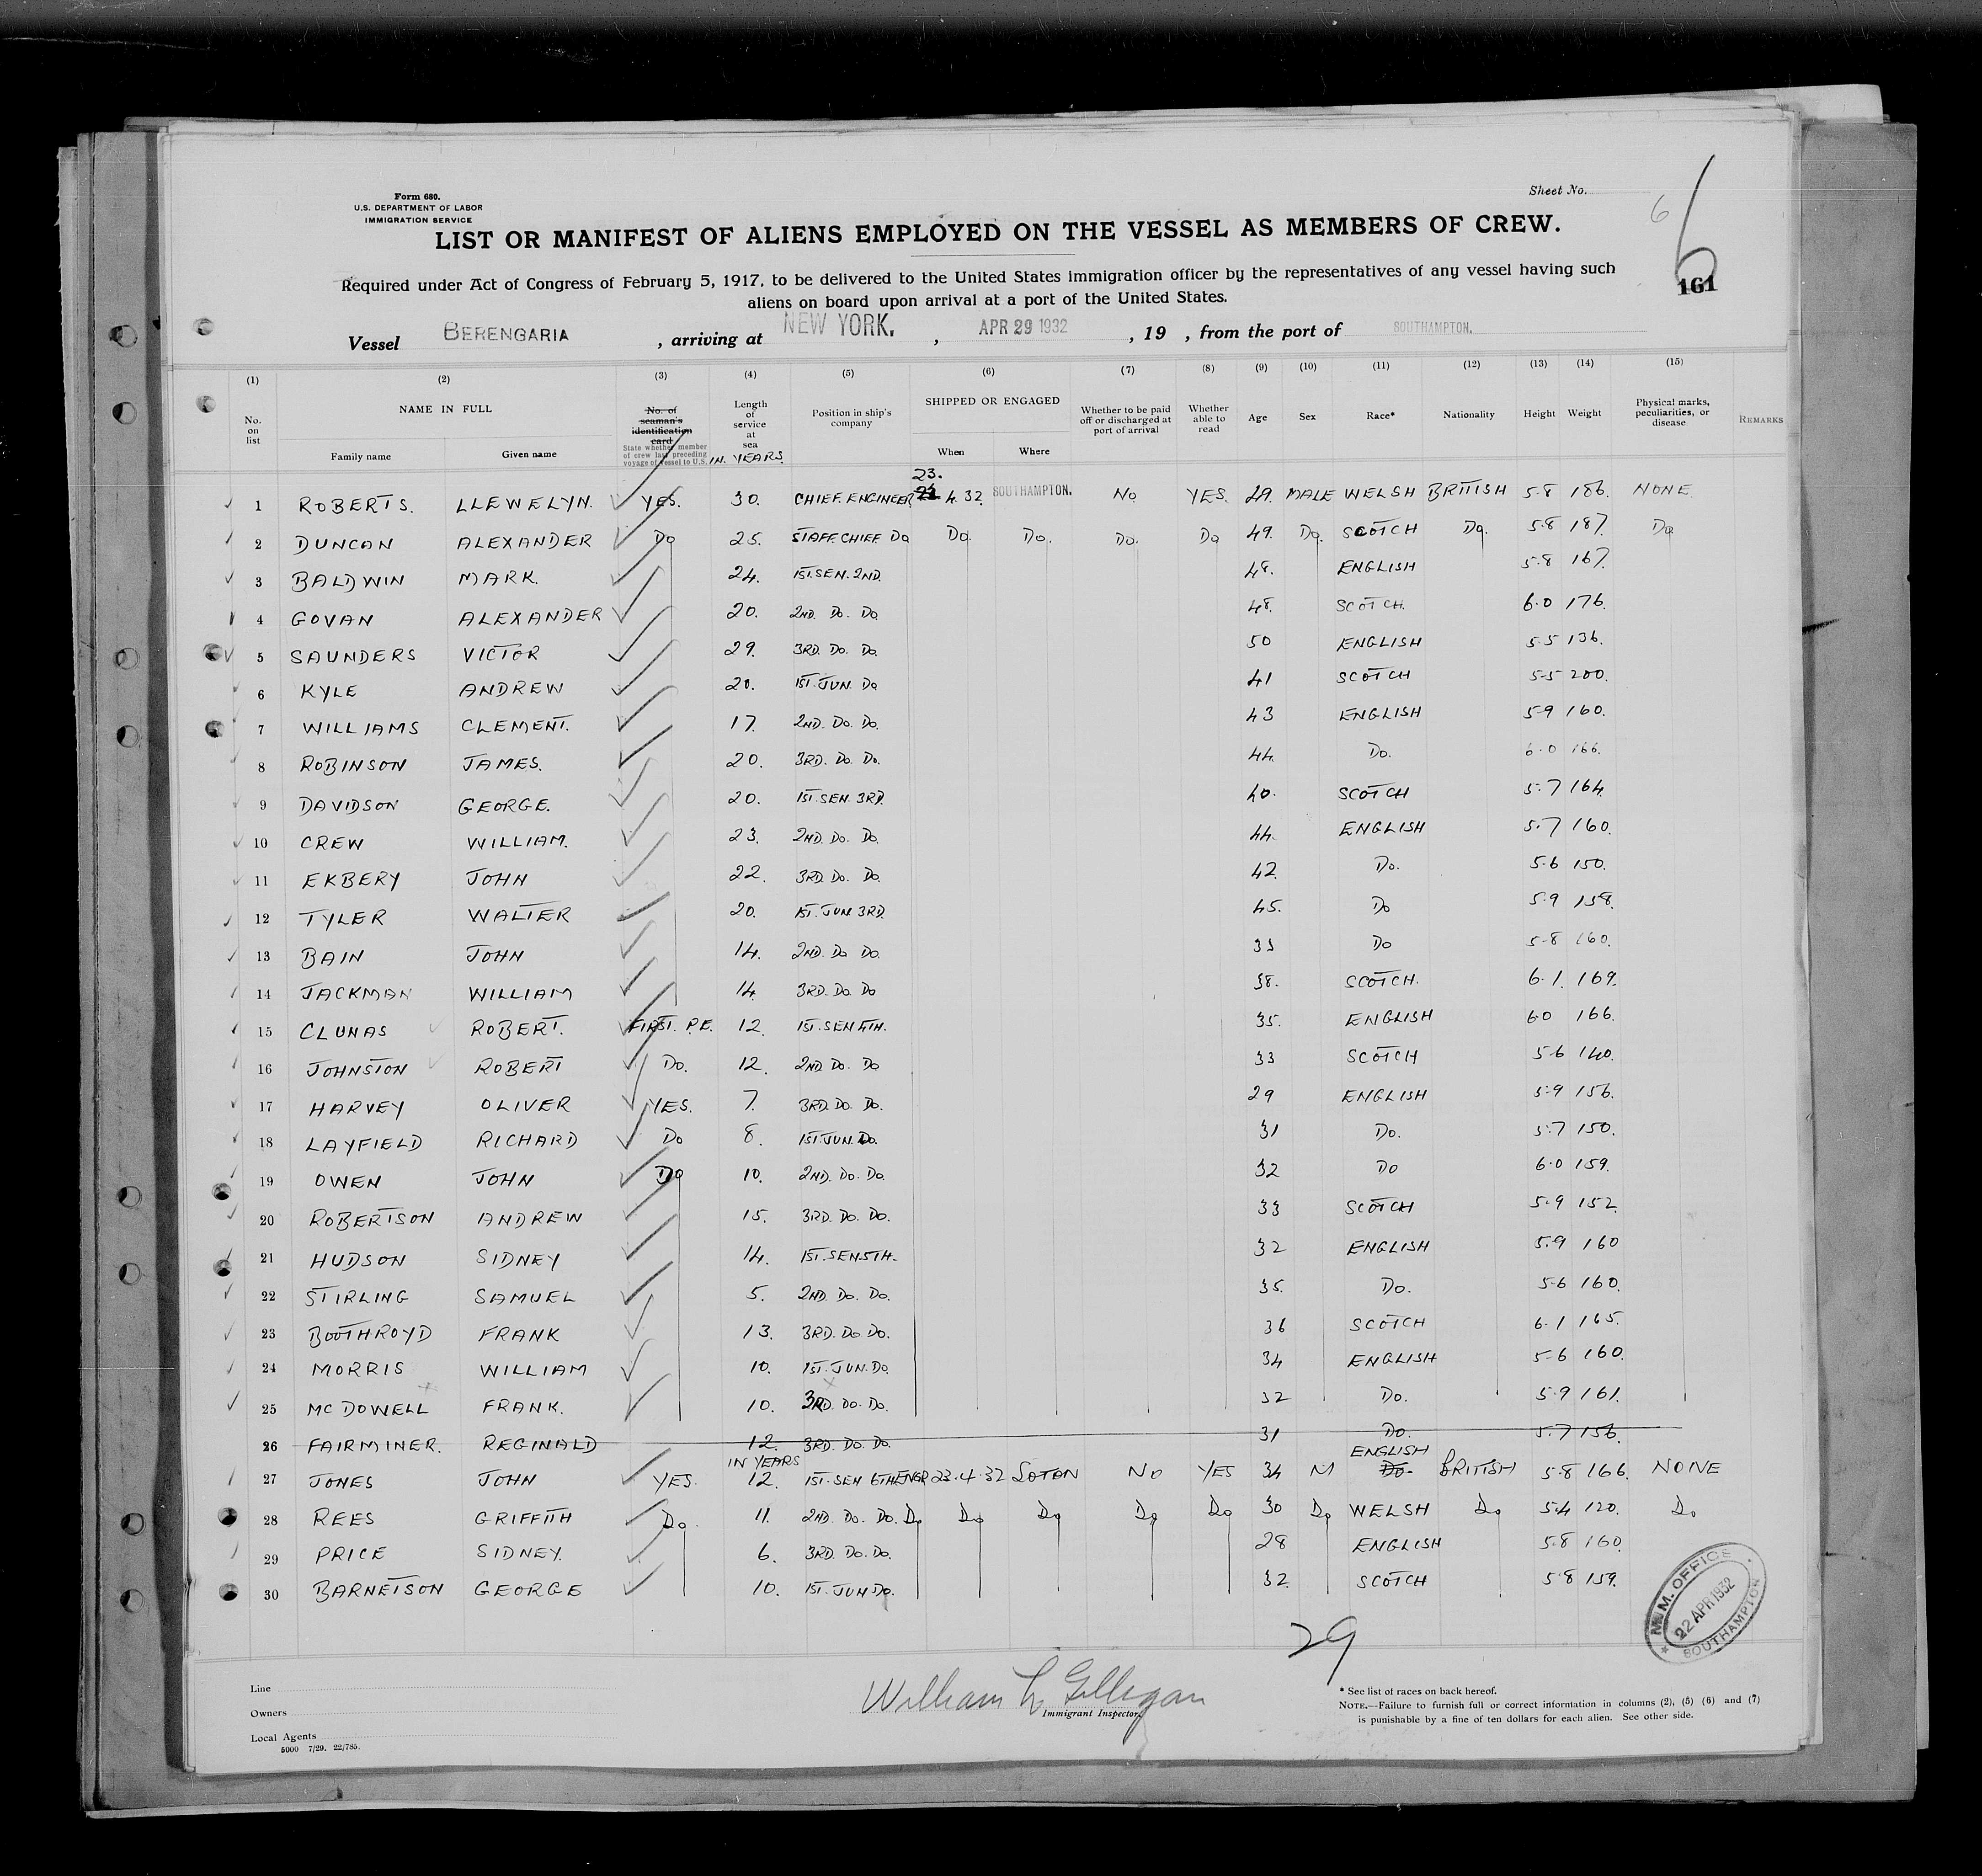 Form 680.
U.S. DEPARTMENT OF LABOR
IMMIGRATION SERVICE
Sheet No.
6 6
LIST OR MANIFEST OF ALIENS EMPLOYED ON THE VESSEL AS MEMBERS OF CREW.
Required under Act of Congress of February 5, 1917, to be delivered to the United States immigration officer by the representatives of any vessel having such
aliens on board upon arrival at a port of the United States.
161
Vessel BERENGARIA , arriving at NEW YORK. , APR 29 1932 , 19 , from the port of SOUTHAMPTON.
(1) (2) (3) (4) (5) (6) (7) (8) (9) (10) (11) (12) (13) (14) (15)
No. on list
NAME IN FULL
Family name Given name
No. of seaman's identification card
State whether member of crew last preceding voyage of vessel to U.S.
Length of service at sea IN YEARS.
Position in ship's company
SHIPPED OR ENGAGED
When Where
Whether to be paid off or discharged at port of arrival
Whether able to read
Age Sex Race* Nationality Height Weight
Physical marks, peculiarities, or disease
REMARKS
23.
1 ROBERTS. LLEWELYN. YES. 30. CHIEF. ENGINEER. 4.32. SOUTHAMPTON. No YES. 29. MALE WELSH BRITISH 5.8 186. NONE.
2 DUNCAN ALEXANDER Do 25. STAFF.CHIEF Do Do. Do. Do. Do 49. Do. SCOTCH Do. 5.8 187. Do
3 BALDWIN MARK. 24. 1ST.SEN.2ND. 48. ENGLISH 5.8 167.
4 GOVAN ALEXANDER 20. 2ND. Do. Do. 48. SCOTCH. 6.0 176.
5 SAUNDERS VICTOR 29. 3RD. Do. Do. 50 ENGLISH 5.5 136.
6 KYLE ANDREW 20. 1ST.JUN. Do 41 SCOTCH 5.5 200.
7 WILLIAMS CLEMENT. 17. 2ND. Do. Do. 43 ENGLISH 5.9 160.
8 ROBINSON JAMES. 20. 3RD. Do. Do. 44. Do. 6.0 166.
9 DAVIDSON GEORGE. 20. 1ST.SEN.3RD. 40. SCOTCH 5.7 164.
10 CREW WILLIAM. 23. 2ND. Do. Do. 44. ENGLISH 5.7 160.
11 EKBERY JOHN 22. 3RD. Do. Do. 42. Do. 5.6 150.
12 TYLER WALTER 20. 1ST. JUN. 3RD. 45. Do 5.9 158.
13 BAIN JOHN 14. 2ND. Do Do. Do 5.8 160.
14 JACKMAN WILLIAM 14. 3RD. Do. Do 38. SCOTCH. 6.1. 169.
15 CLUNAS ROBERT. FIRST. P.E. 12. 1ST.SEN 4TH. 35. ENGLISH 6.0 166.
16 JOHNSTON ROBERT Do. 12. 2ND. Do. Do 33 SCOTCH 5.6 140.
17 HARVEY OLIVER YES. 7. 3RD. Do. Do. 29 ENGLISH 5.9 156.
18 LAYFIELD RICHARD Do 8. 1ST.JUN. Do. 31 Do. 5.7 150.
19 OWEN JOHN Do 10. 2ND. Do. Do. 32 Do 6.0 159.
20 ROBERTSON ANDREW 15. 3RD. Do. Do. 33 SCOTCH 5.9 152.
21 HUDSON SIDNEY 14. 1ST.SEN5TH. 32 ENGLISH 5.9 160
22 STIRLING SAMUEL 5. 2ND. Do. Do. 35. Do. 5.6 160.
23 BOOTHROYD FRANK 13. 3RD. Do Do. 36 SCOTCH 6.1 165.
24 MORRIS WILLIAM 10. 1ST. JUN. Do. 34 ENGLISH 5.6 160.
25 MC DOWELL FRANK. 10. 3RD. Do. Do. 32 Do. 5.9 161.
26 FAIRMINER. REGINALD 12. 3RD. Do. Do. 31 Do. 5.7 156.
IN YEARS ENGLISH
27 JONES JOHN YES. 12. 1ST. SEN 6THENGR 23.4.32 SOTON No YES 34 M Do. BRITISH 5.8 166. NONE
28 REES GRIFFITH Do. 11. 2ND. Do. Do. Do Do Do Do Do 30 Do WELSH Do 5.4 120. Do
29 PRICE SIDNEY. 6. 3RD. Do. Do. 28 ENGLISH 5.8 160.
30 BARNETSON GEORGE 10. 1ST. JUN Do. 32. SCOTCH 5.8 159.
M.M. OFFICE
22 APR 1932
SOUTHAMPTON
29
Line
Owners
Local Agents
5000 7/29. 22/785.
William L Gilligan
Immigrant Inspector.
* See list of races on back hereof.
NOTE.—Failure to furnish full or correct information in columns (2), (5) (6) and (7)
is punishable by a fine of ten dollars for each alien. See other side.